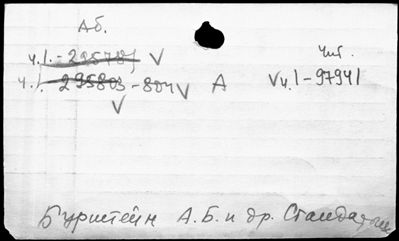 Аб.
ч.1.-295781 V Чит.
ч.1.-295803-804 V А V ч.1-97941
V
Бурштейн А.Б. и др. Стандарты